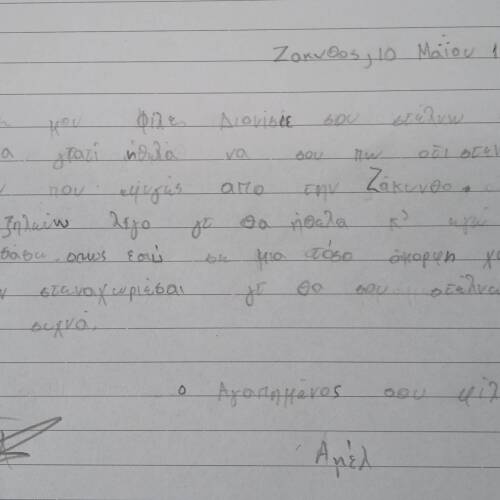 Ζακυνθος, 10 Μαϊου 1
μου Φίλε Διονίσιε σου στέλνω
α γιατί ήθελα να σου πω οτι στεν
που έφυγές απο την Ζάκυνθο.
ζηλεύω λίγο γτ θα ήθελα κ' εγώ
οπως εσύ σε μια τόσο όμορφη χ
στεναχωριέσαι γτ θα σου στέλνω
συχνά.
ο Αγαπημένος σου φίλ
Αμέλ